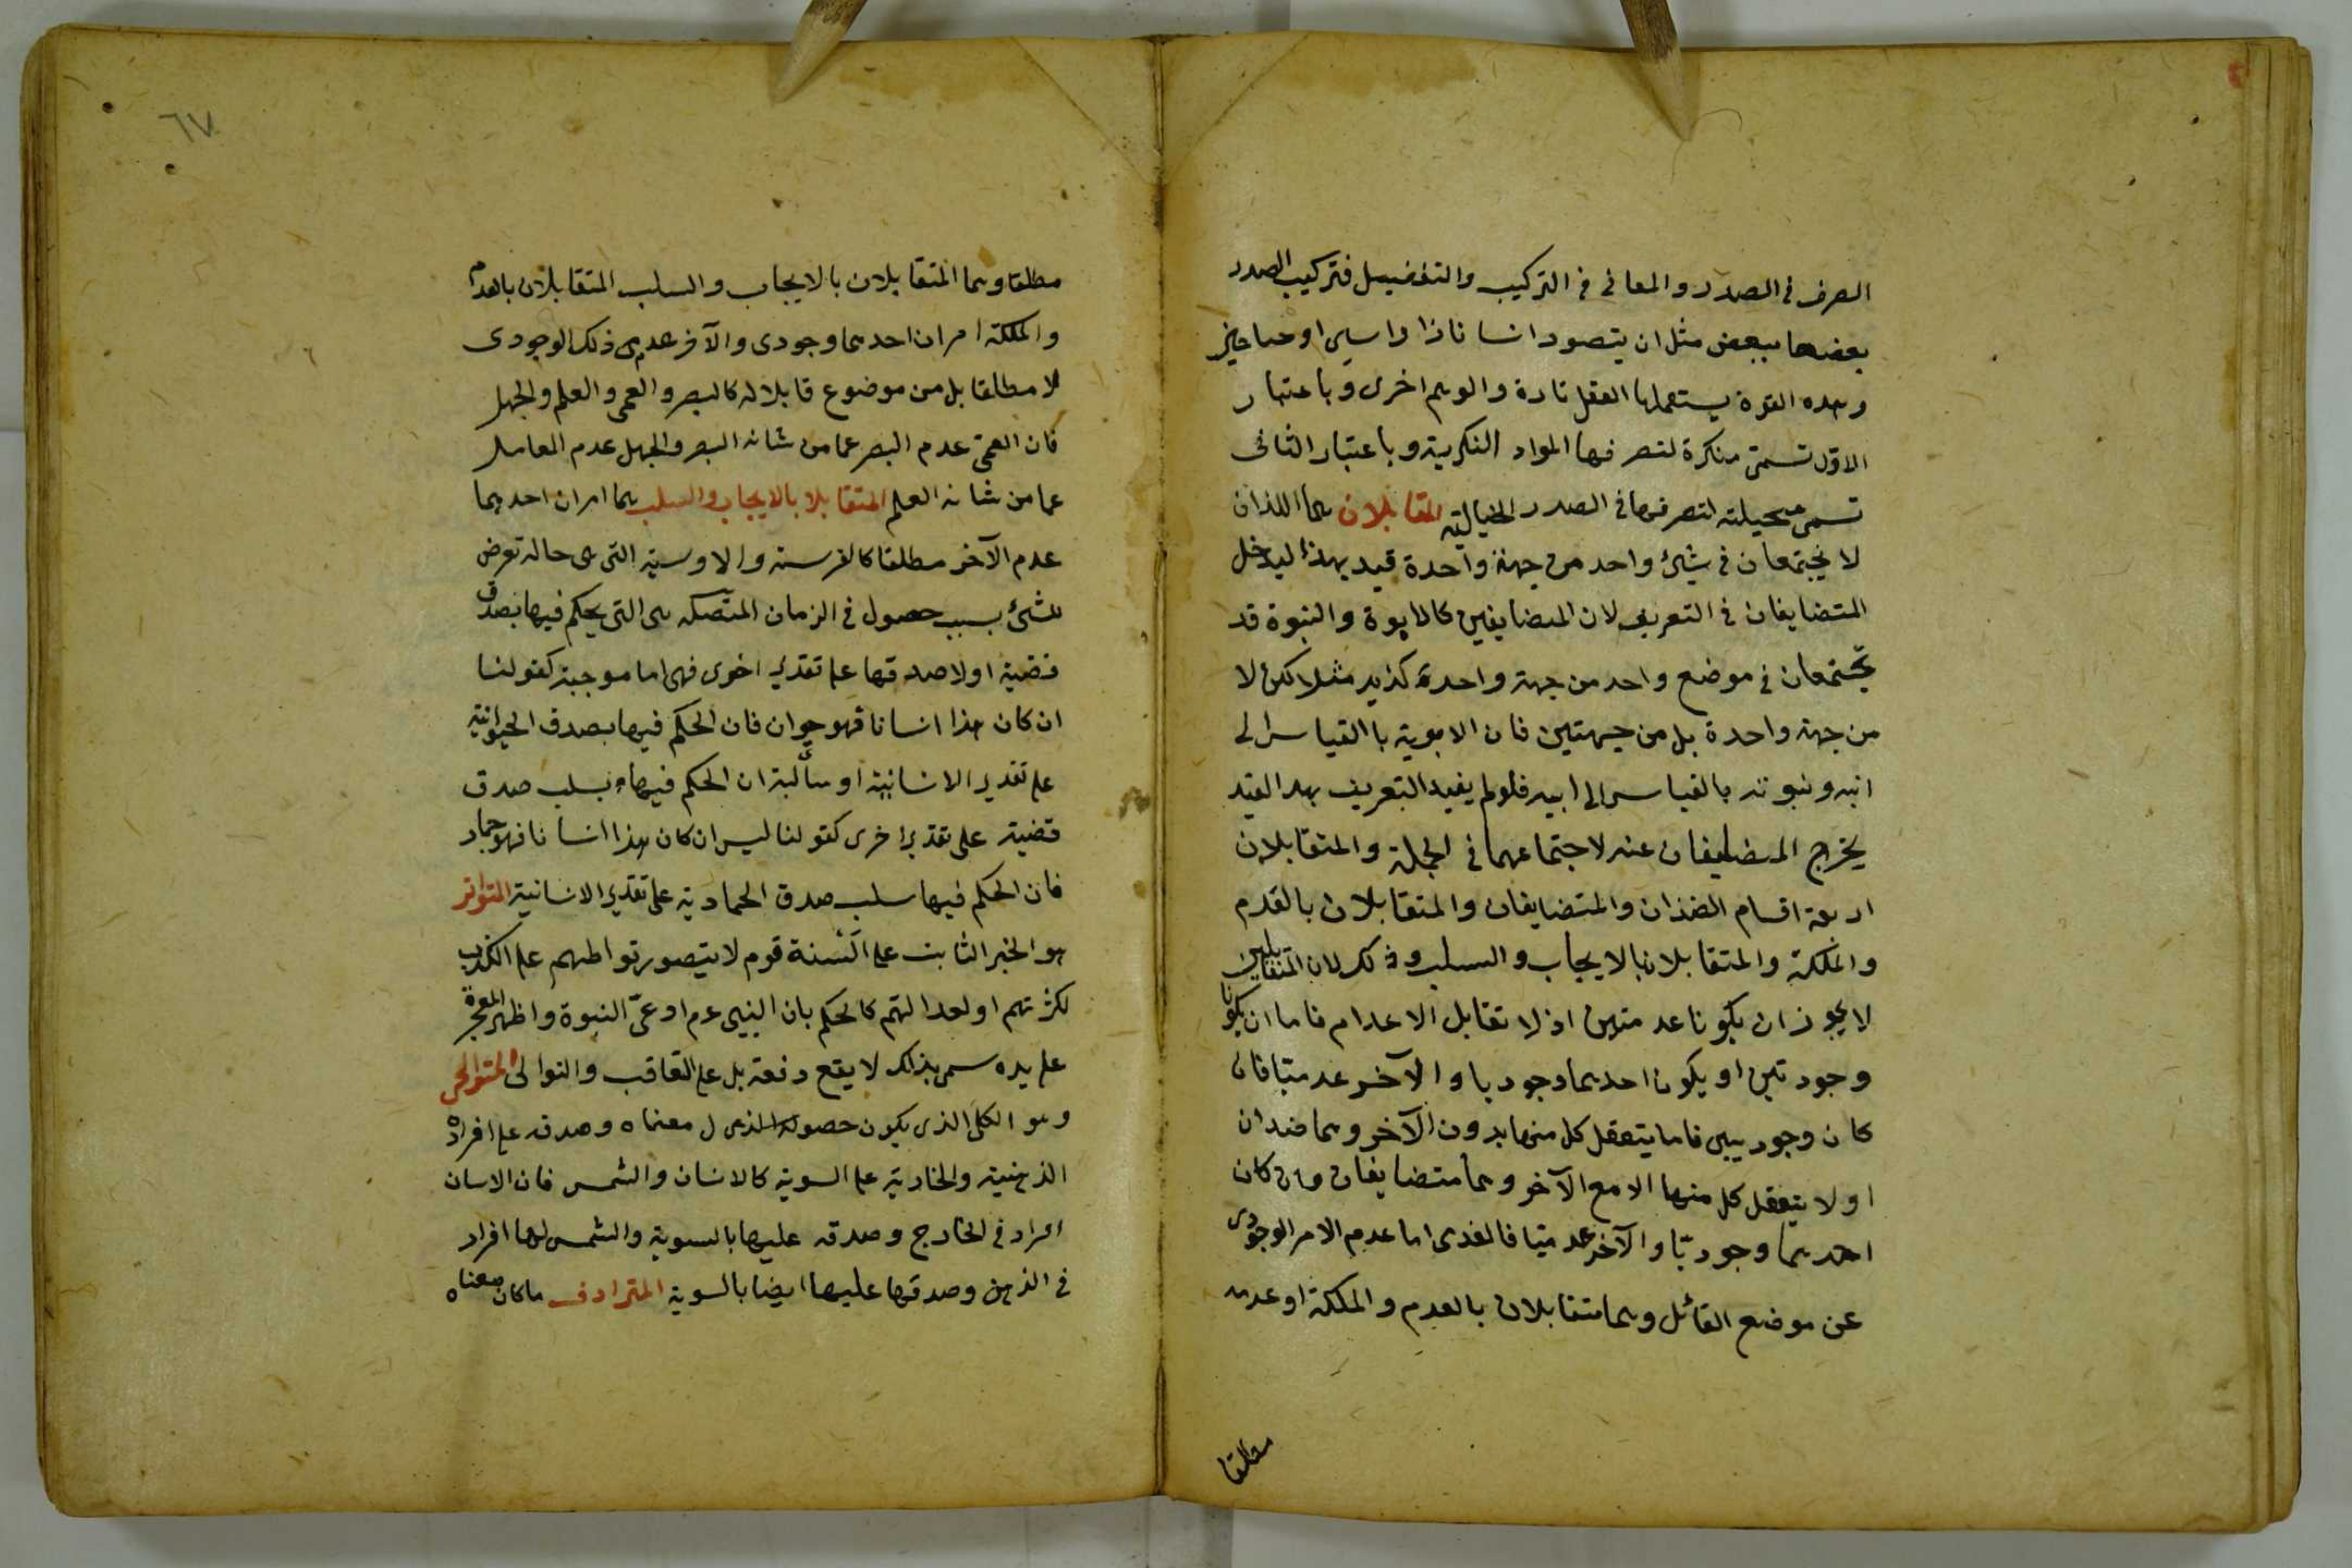 الصرف في الصور والمعانى في التركيب والتفصيل فتركيب الصور
بعضها ببعض مثل ان يتصور انسانا ذا راسين او جناحين
وهده القوة يستعملها العقل تارة والوهم اخرى وباعتبار
الاوّل تسمّى مفكرة لتصرفها المواد الفكرية وباعتبار الثانى
تسمى متخيلة لتصرفها في الصور الخيالية المتقابلان هما اللذان
لا يجتمعان في شيئ واحد من جهة واحدة قيد بهذا ليدخل
المتضايفان في التعريف لان المضايفين كالابوة والبنوة قد
يجتمعان في موضع واحد من جهة واحدة كزيد مثلا لكن لا
من جهة واحدة بل من جهتين فان الابوية باالقياس الى
ابنه وبنوته بالقياس الى ابيه فلو لم يفيد التعريف بهدا القيد
يخرج المتضايفان عنه لاجتماعهما في الجملة والمتقابلان
اربعة اقسام الضدان والمتضايفان والمتقابلان بالعدم
والملكة والمتقابلان بالايجاب والسلب وذلك لان المتقابلين
لا يجوز ان يكونا عدميين اذ لا تقابل الاعدام فاما ان يكونا
وجودتين او يكون احدهما وجوديا والآخر عدميّا فان
كان وجوديين فاما يتعقل كل منها بدون الآخر وهما ضدان
او لا يتعقل كل منها الا مع الآخر وهما متضايفان وان كان
احدهما وجوديّا والآخر عدميّا فالعدمى اما عدم الامر الوجودى
عن موضع القائل وهما متقابلان بالعدم والملكة او عدمه
مطلقا
٦٧
مطلقا وهما المتقابلان بالايجاب والسلب المتقابلان بالعدم
والملكة امران احدهما وجودى والآخر عدمى ذلك الوجودى
لا مطلقا بل من موضوع قابلا له كالبصر والعمى والعلم والجهل
فان العمى عدم البصر عما من شانه البصر والجهل عدم العلم
عما من شانه العلم المتقابلا بالايجاب والسلب هما امران احدهما
عدم الآخر مطلقا كالفرسية واللافرسية التى هى حالة تعرض
للشئ بسبب حصول في الزمان المتصلة هى التى يحكم فيها بصدق
قضية اولا صدقها على تقدير اخرى فهى اما موجبة كقولنا
ان كان هذا انسانا فهو حيوان فان الحكم فيها بصدق الحيوانية
على تقدير الانسانية او سالبة ان الحكم فيها بسلب صدق
قضية على تقدير اخرى كقولنا ليس ان كان هذا انسانا فهو جماد
فان الحكم فيها سلب صدق الجمادية على تقدير الانسانية المتواتر
هو الخبر الثابت على ألسنة قوم لا يتصور تواطئهم على الكذب
لكثرتهم او لعدالتهم كالحكم بان النبيى عم ادعىّ النبوة واظهر المعجزة
على يده سمى بذلك لا يقع دفعة بل على التعاقب والتوالى المتواطى
وهو الكلى الذى يكون حصول معناه وصدقه على افراده
الذهنية والخارجية على السوية كالانسان والشمس فان الانسان
افراد في الخارج وصدقه عليها بالسوية والشمس لها افراد
في الذهن وصدقها عليها ايضا بالسوية المترادف ما كان معناه